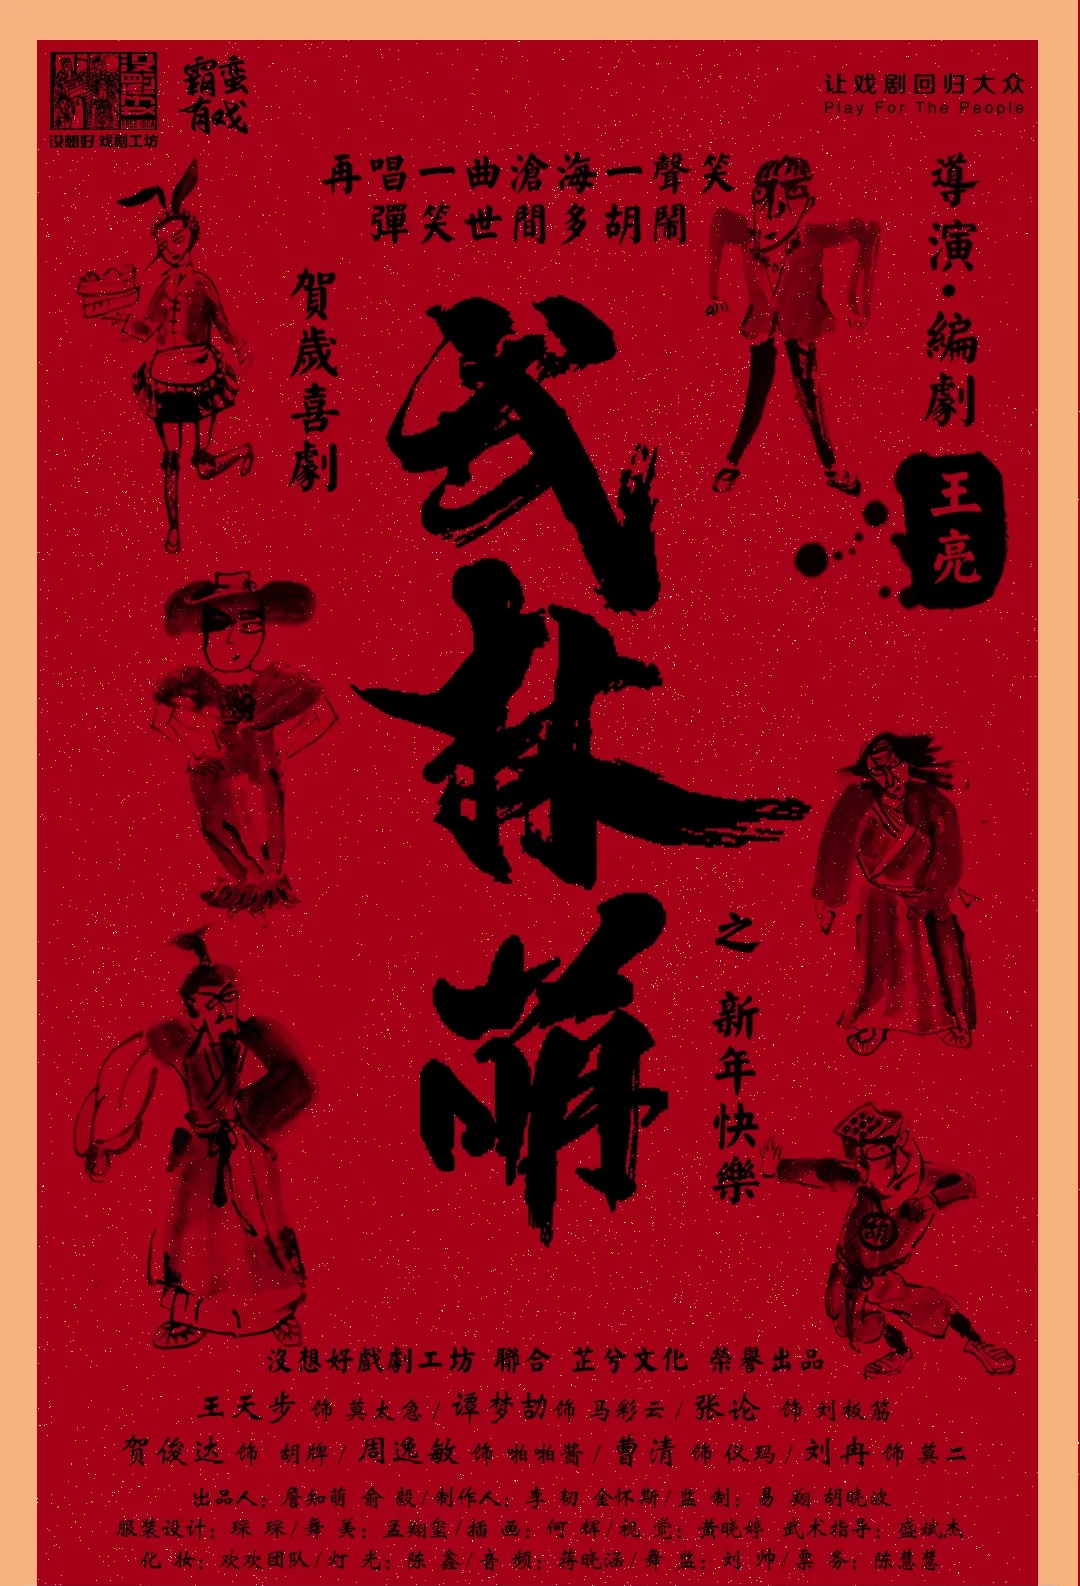 没想好 戏剧工坊
霸蛮
有戏
让戏剧回归大众
Play For The People
再唱一曲滄海一聲笑
彈笑世間多胡鬧
賀歲喜劇
武林萌
之 新年快樂
導演·編劇
王亮
胡
沒想好戲劇工坊 聯合 芷兮文化 榮譽出品
王天步 饰 莫太急/谭梦劼饰 马彩云/张论 饰 刘板筋
贺俊达 饰 胡牌/周逸敏 饰 啪啪酱/曹清 饰 仪玛/刘冉 饰 莫二
出品人：詹知萌 俞 毅/制作人：李 韧 金怀斯/监 制：易 翔 胡晓波
服装设计：琛 琛/舞 美：孟翔玺/插 画：何 辉/视 觉：黄晓婷 武术指导：盛斌杰
化 妆：欢欢团队/灯 光：陈 鑫/音 频：蒋晓涵/舞 监：刘 帅/票 务：陈慧慧